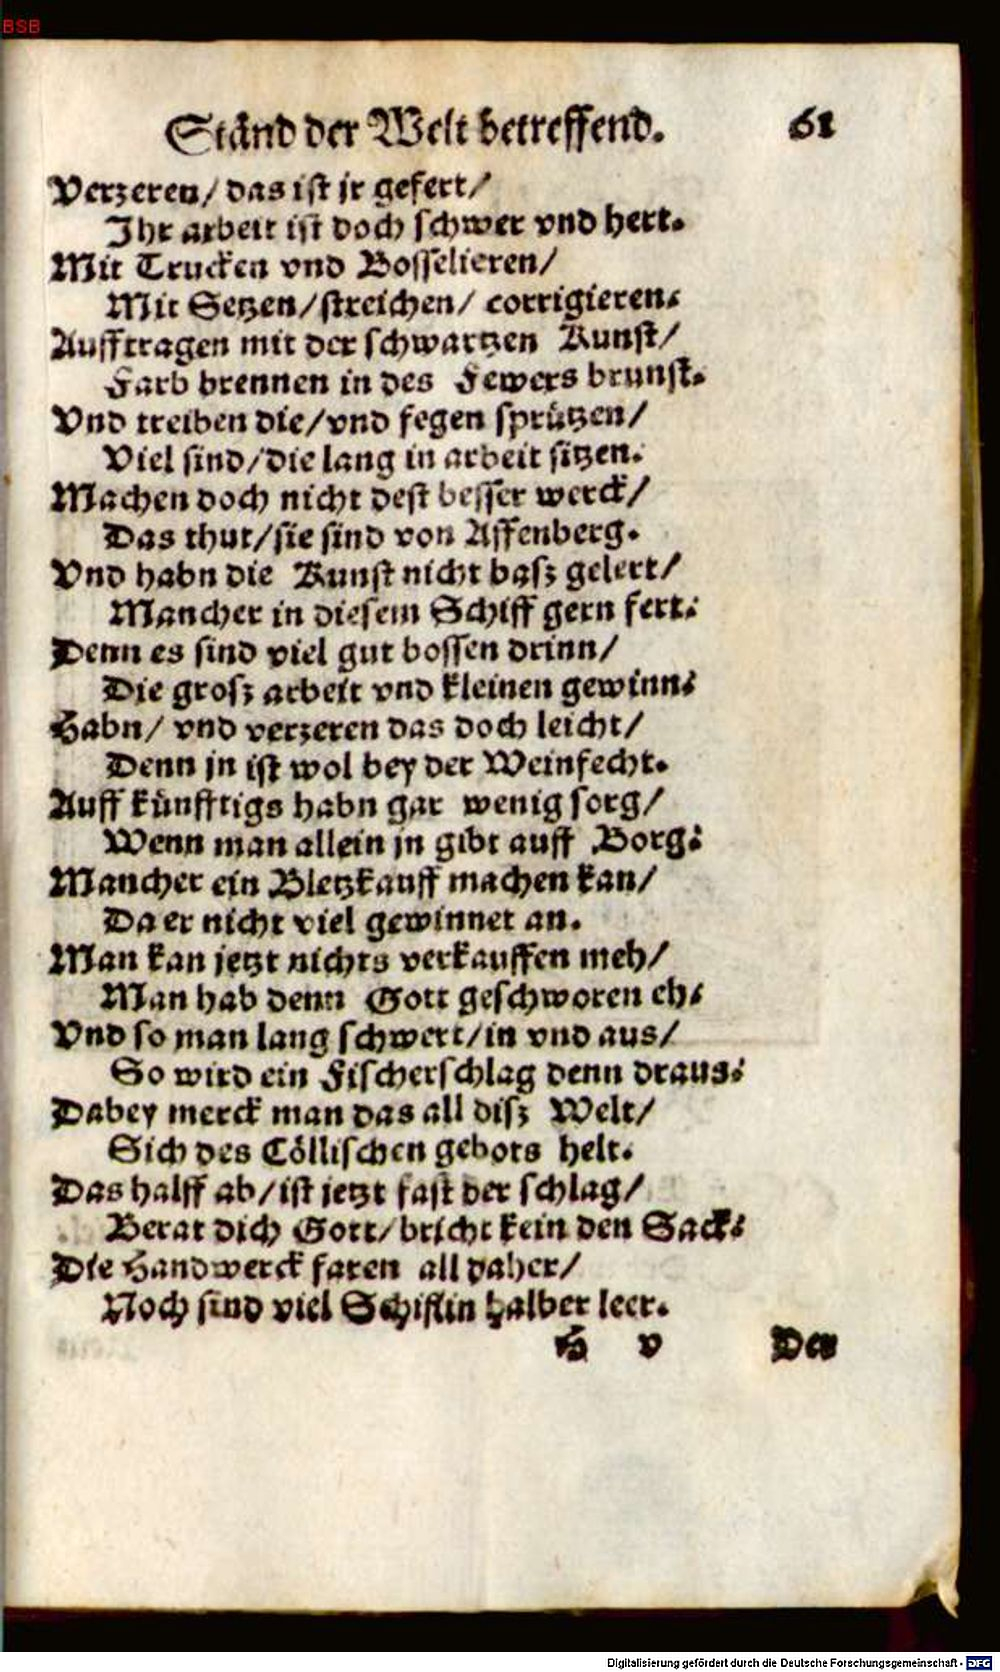 BSB
Stånd der Welt betreffend. 61
Verzeren/ das ist jr gefert/
Ihr arbeit ist doch schwer vnd hert.
Mit Trucken vnd Bosselieren/
Mit Setzen/streichen/ corrigieren.
Aufftragen mit der schwartzen Kunst/
Farb brennen in des Fewers brunst.
Vnd treiben die/vnd fegen sprützen/
Viel sind/die lang in arbeit sitzen.
Machen doch nicht dest besser werck/
Das thut/sie sind von Affenberg.
Vnd habn die Kunst nicht basz gelert/
Mancher in diesem Schiff gern fert.
Denn es sind viel gut bossen drinn/
Die grosz arbeit vnd kleinen gewinn.
Habn/ vnd verzeren das doch leicht/
Denn jn ist wol bey der Weinfecht.
Auff künfftigs habn gar wenig sorg/
Wenn man allein jn gibt auff Borg.
Mancher ein Bletzkauff machen kan/
Da er nicht viel gewinnet an.
Man kan jetzt nichts verkauffen meh/
Man hab denn Gott geschworen eh.
Vnd so man lang schwert/in vnd aus/
So wird ein Fischerschlag denn draus.
Dabey merck man das all disz Welt/
Sich des Cöllischen gebots helt.
Das halff ab/ist jetzt fast der schlag/
Berat dich Gott/bricht kein den Sack.
Die Handwerck faren all daher/
Noch sind viel Schiflin halber leer.
H v Der
Digitalisierung gefördert durch die Deutsche Forschungsgemeinschaft - DFG